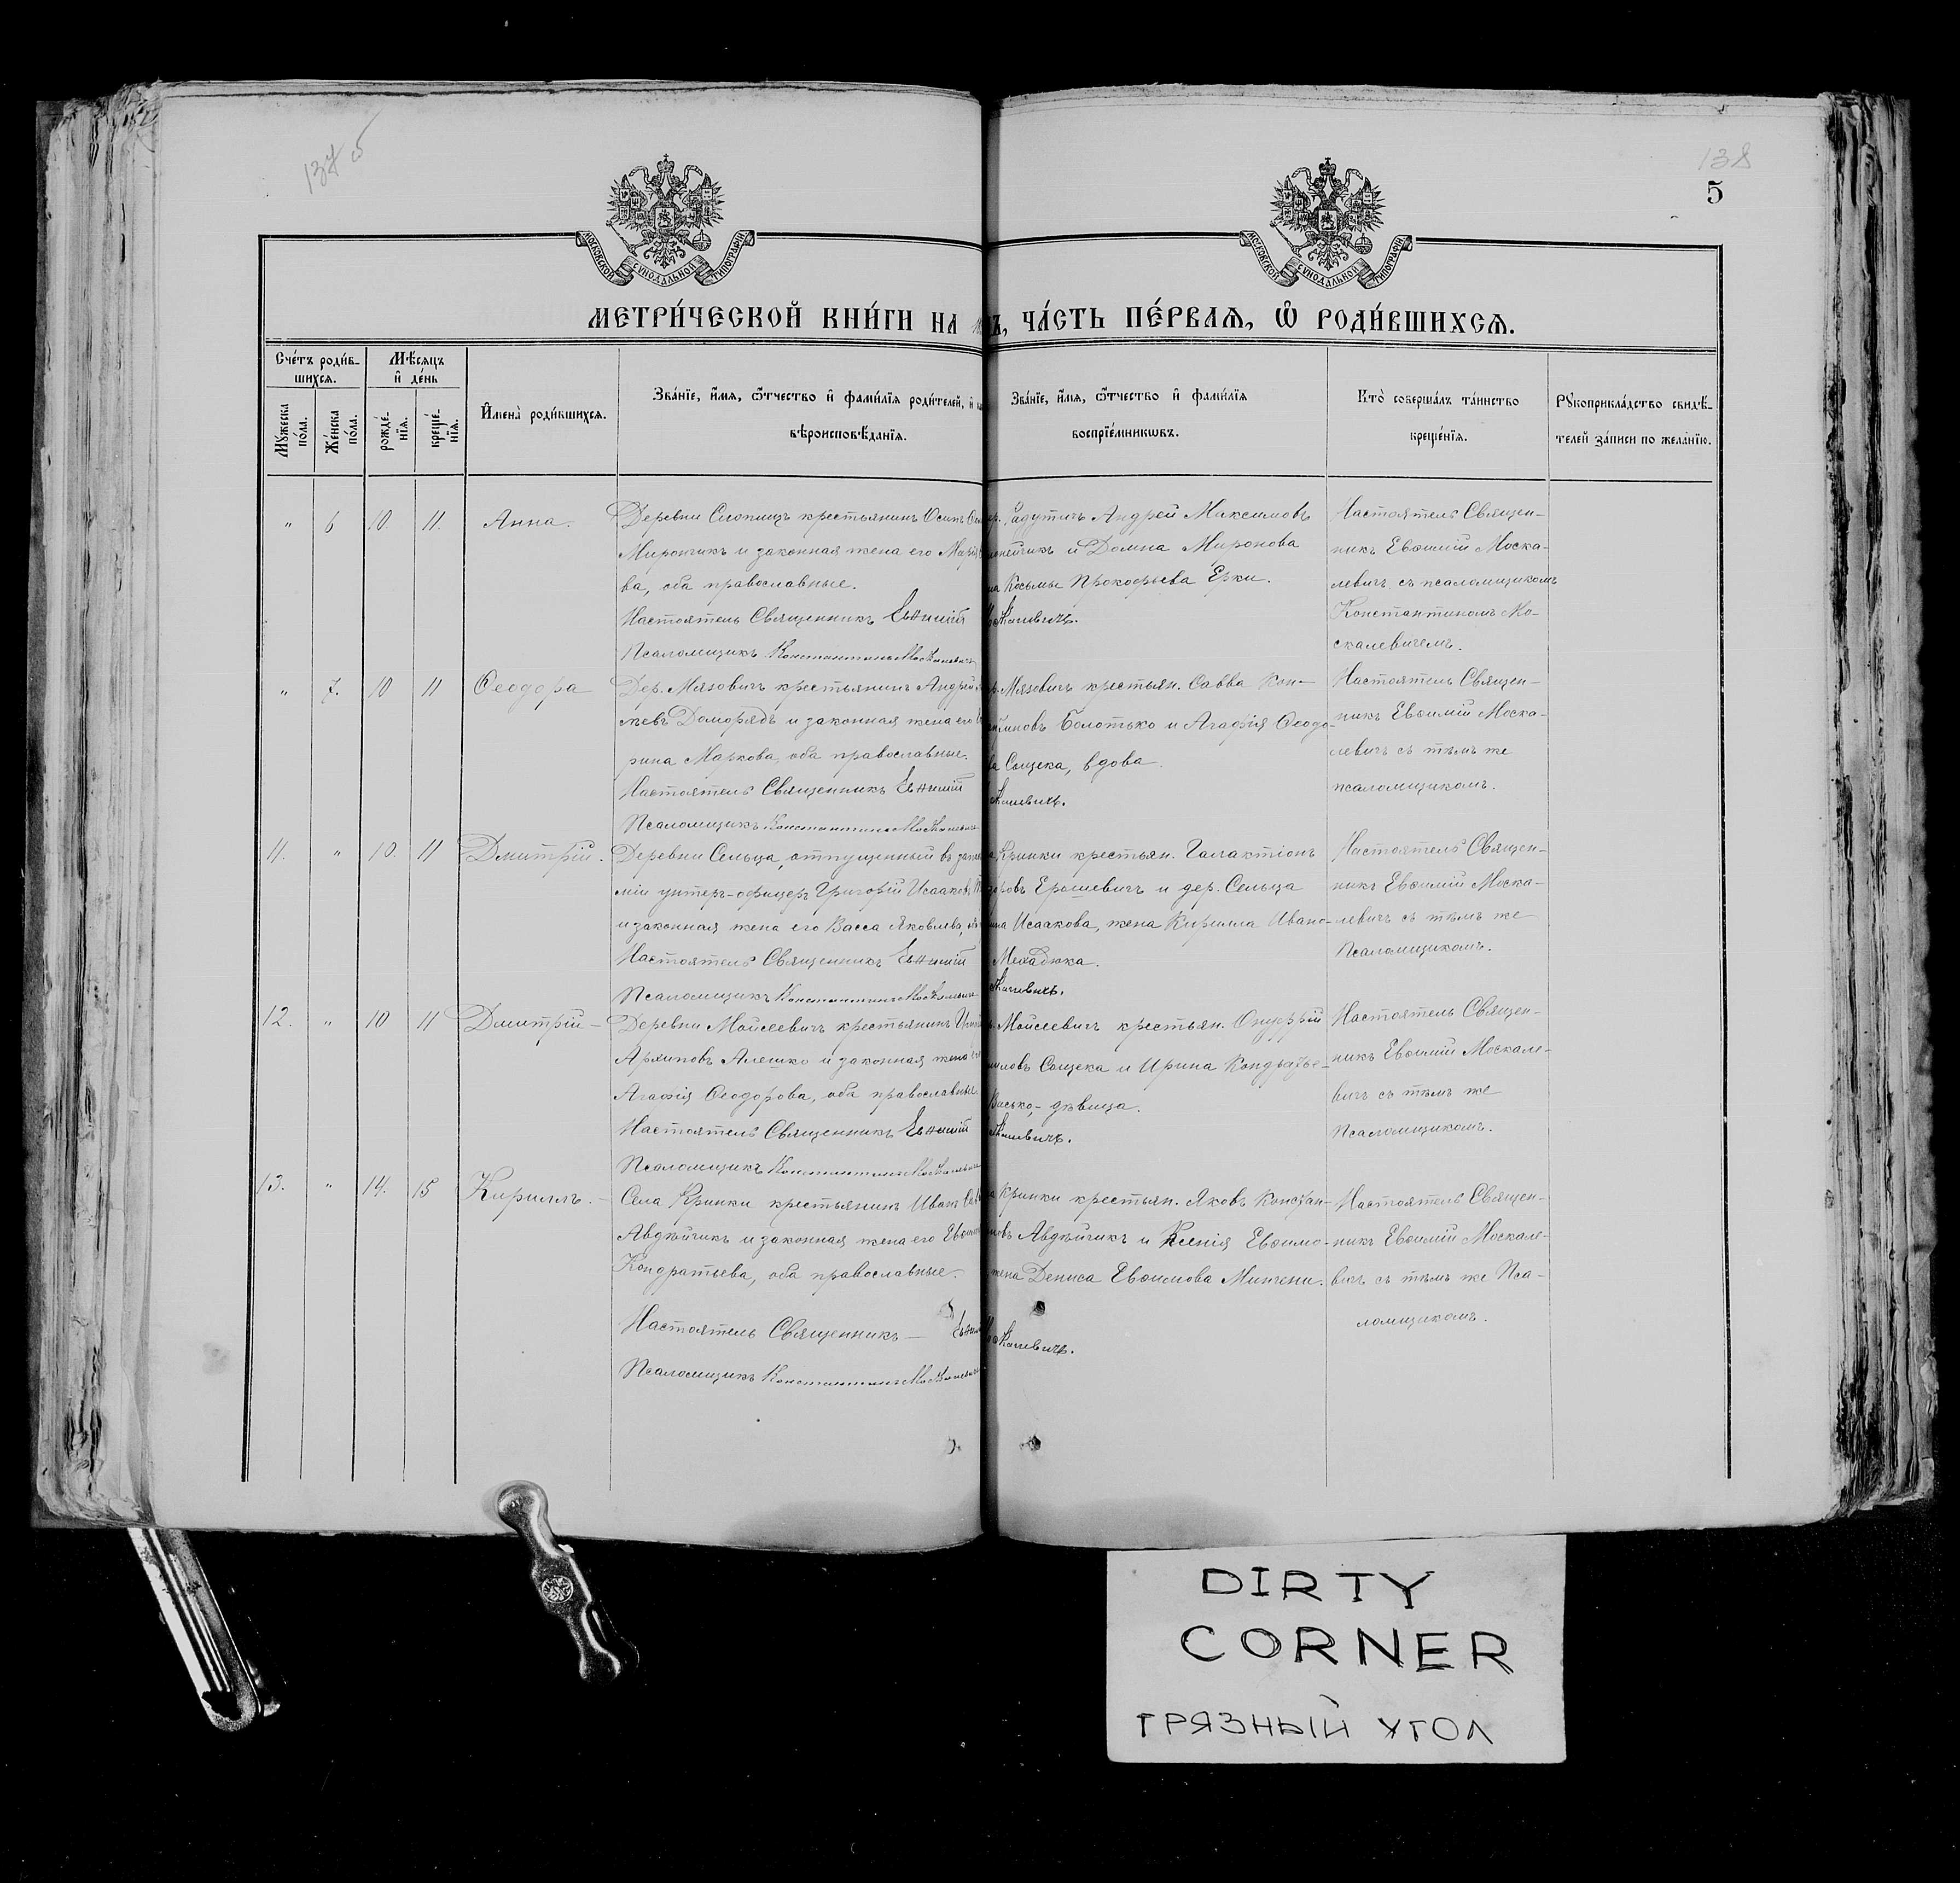 137 об
138
5
МОСКОВСКОЙ СѴНОДАЛЬНОЙ ТИПОГРАФІИ
МОСКОВСКОЙ СѴНОДАЛЬНОЙ ТИПОГРАФІИ
МЕТРИ́ЧЕСКОЙ КНИ́ГИ НА
, ЧА́СТЬ ПЕ́РВАѦ, Ѡ РОДИ́ВШИХСѦ.
Сче́тъ роди́в-
шихсѧ.
Мꙋ́жеска по́ла.
Же́нска по́ла.
Мѣ́сѧцъ
и҆ де́нь
рожде́-
нїѧ.
креще́-
нїѧ.
И҆мена̀ роди́вшихсѧ.
Зва́нїе, и҆́мѧ, ѻ҆́тчество и҆ фами́лїѧ роди́телей, и҆
вѣроисповѣ́данїѧ.
Зва́нїе, и҆́мѧ, ѻ҆́тчество и҆ фами́лїѧ
воспрїе́мникѡвъ.
Кто̀ соверша́лъ та́инство
креще́нїѧ.
Рꙋкоприкла́дство свидѣ́-
телей за́писи по жела́нїю.
" 6 10. 11. Анна.
Деревни Слопищъ крестьянинъ Осипъ
Мирончикъ и законная жена его Марія
ва, оба православные.
Настоятель Священникъ Евѳимій
Псаломщикъ Константинъ Москалевичъ
Радутичъ Андрей Максимовъ
и Домна Миронова
Косьмы Прокофьева Ерки.
Настоятель Священ-
никъ Евѳимій Моска-
левичъ съ псаломщикомъ
Константиномъ Мо-
скалевичемъ.
" 7. 10 11 Ѳеодора
Дер. Мязовичъ крестьянинъ Андрей
жевъ Доморядъ и законная жена его
рина Маркова, оба православные.
Настоятель Священникъ Евѳимій
Псаломщикъ Константинъ Москалевичъ
Мязовичъ крестьян. Савва Кон-
Болотько и Агафія Ѳеодо-
Сыщека, вдова.
Настоятель Священ-
никъ Евѳимій Моска-
левичъ съ тѣмъ же
псаломщикомъ.
11. " 10. 11 Дмитрій.
Деревни Сельца, отпущенный въ
міи унтеръ-офицеръ Григорій Исааковъ
и законная жена его Васса Яковлева,
Настоятель Священникъ Евѳимій
Псаломщикъ Константинъ Москалевичъ
Кринки крестьян. Галактіонъ
Ерошевичъ и дер. Сельца
Исаакова, жена Кирилла Ивано-
Мехадюка.
Настоятель Священ-
никъ Евѳимій Моска-
левичъ съ тѣмъ же
Псаломщикомъ.
12. " 10 11 Дмитрій
Деревни Мойсеевичъ крестьянинъ
Архиповъ Алешко и законная жена его
Агафія Ѳеодорова, оба православные
Настоятель Священникъ Евѳимій
Псаломщикъ Константинъ Москалевичъ
Мойсеевичъ крестьян. Онуфрій
Сыщека и Ирина Кондратье-
Васько, - дѣвица.
Настоятель Священ-
никъ Евѳимій Москале-
вичъ съ тѣмъ же
Псаломщикомъ.
13. " 14. 15 Кириллъ.
Села Кринки крестьянинъ Иванъ
Авдѣйчикъ и законная жена его
Кондратьева, оба православные.
Настоятель Священникъ
Псаломщикъ Константинъ Москалевичъ
Кринки крестьян. Яковъ Констан-
Авдѣйчикъ и Ксенія Евѳимо-
жена Дениса Евѳимова Минчени.
Настоятель Священ-
никъ Евѳимій Москале-
вичъ съ тѣмъ же Пса-
ломщикомъ.
DIRTY
CORNER
ГРЯЗНЫЙ УГОЛ